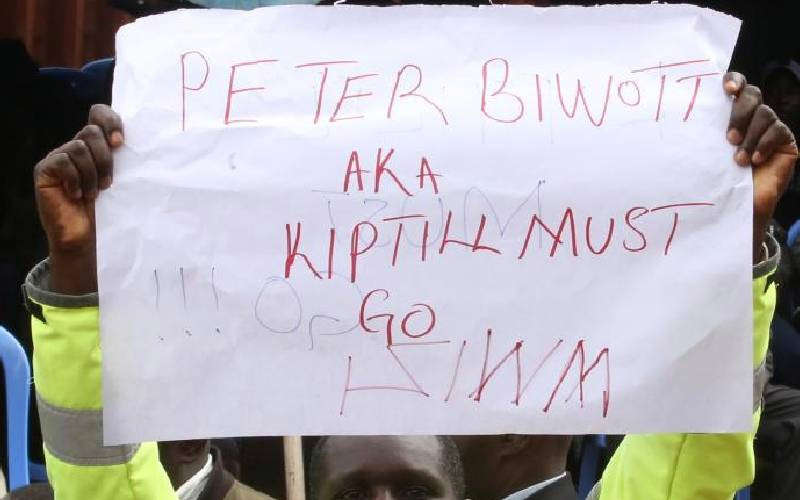 PETER BIWOTT
AKA
KIPTILL MUST
GO